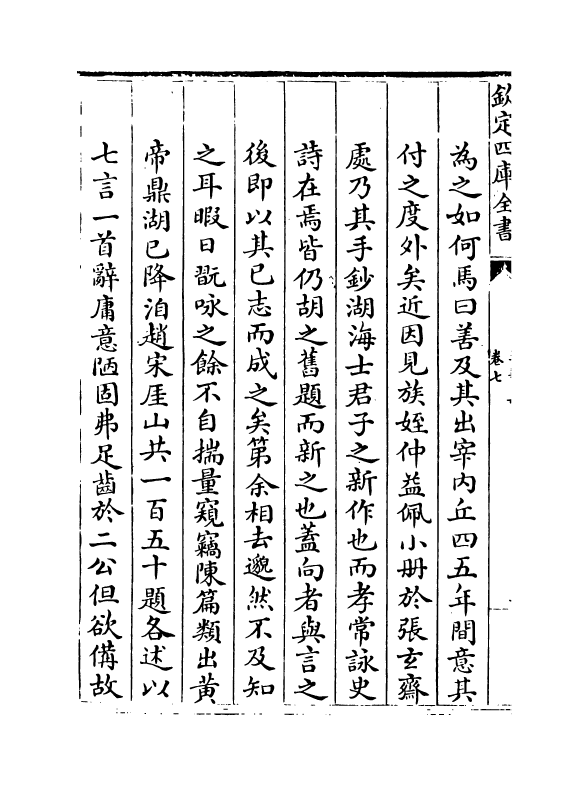 欽定四庫全書
卷七
為之如何馬曰善及其出宰内丘四五年間意其
付之度外矣近因見族姪仲益佩小册於張玄齋
處乃其手鈔湖海士君子之新作也而孝常詠史
詩在焉皆仍胡之舊題而新之也葢向者與言之
後即以其已志而成之矣第余相去邈然不及知
之耳暇日翫咏之餘不自揣量窺竊陳篇類出黄
帝鼎湖已降洎趙宋厓山共一百五十題各述以
七言一首辭庸意陋固弗足齒於二公但欲備故